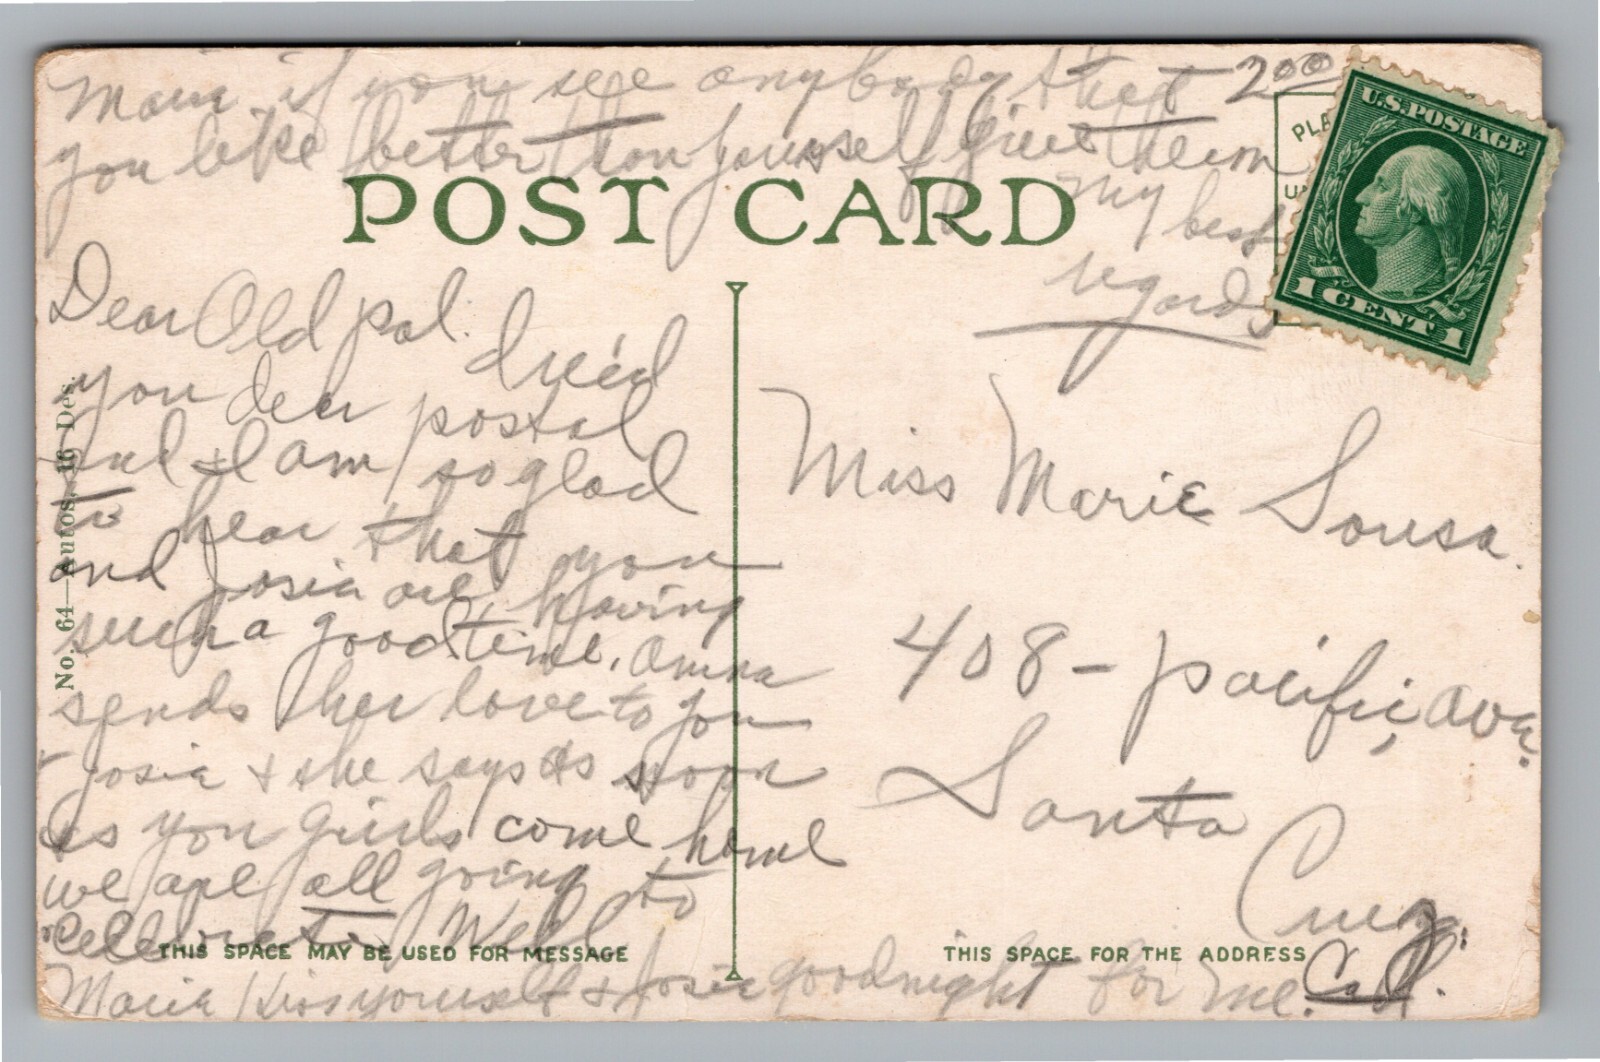 Marie if you see anybody that 200
you like better than yourself give them
my best
regards
PLA
U.S. POSTAGE
1 CENT 1
POST CARD
Dear Old pal. I rec'd
you dear postal
and I am so glad
to hear that you
and Josie are having
such a good time. Anna
sends her love to you
+ Josie + she says as soon
as you girls come home
we are all going to
"celebrate. Well
Marie Kiss yourself + Josie goodnight for me.
No. 64—Autos. 16 Des.
Miss Marie Sousa.
408 - Pacific, Ave.
Santa
Cruz,
Cal.
THIS SPACE MAY BE USED FOR MESSAGE
THIS SPACE FOR THE ADDRESS